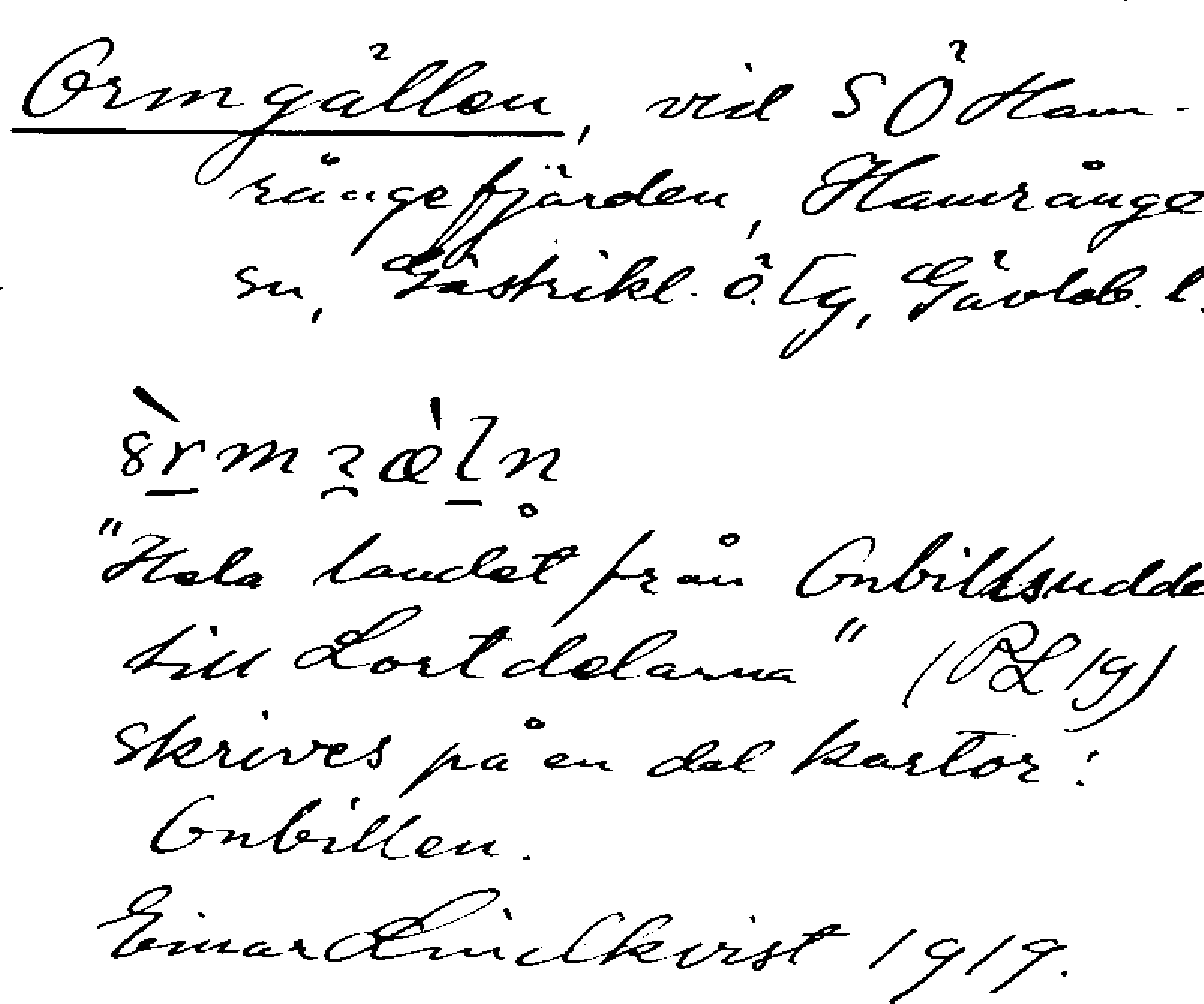 Ormgällen, vid SÖ Ham-
rångefjärden, Hamrånge
sn, Gästrikl. ö. tg, Gävleb. l.
"Hela landet från Onbillsudde
till Lortdelarna" (PL 19)
skrives på en del kartor:
Onbillen.
Einar Lindkvist 1919.